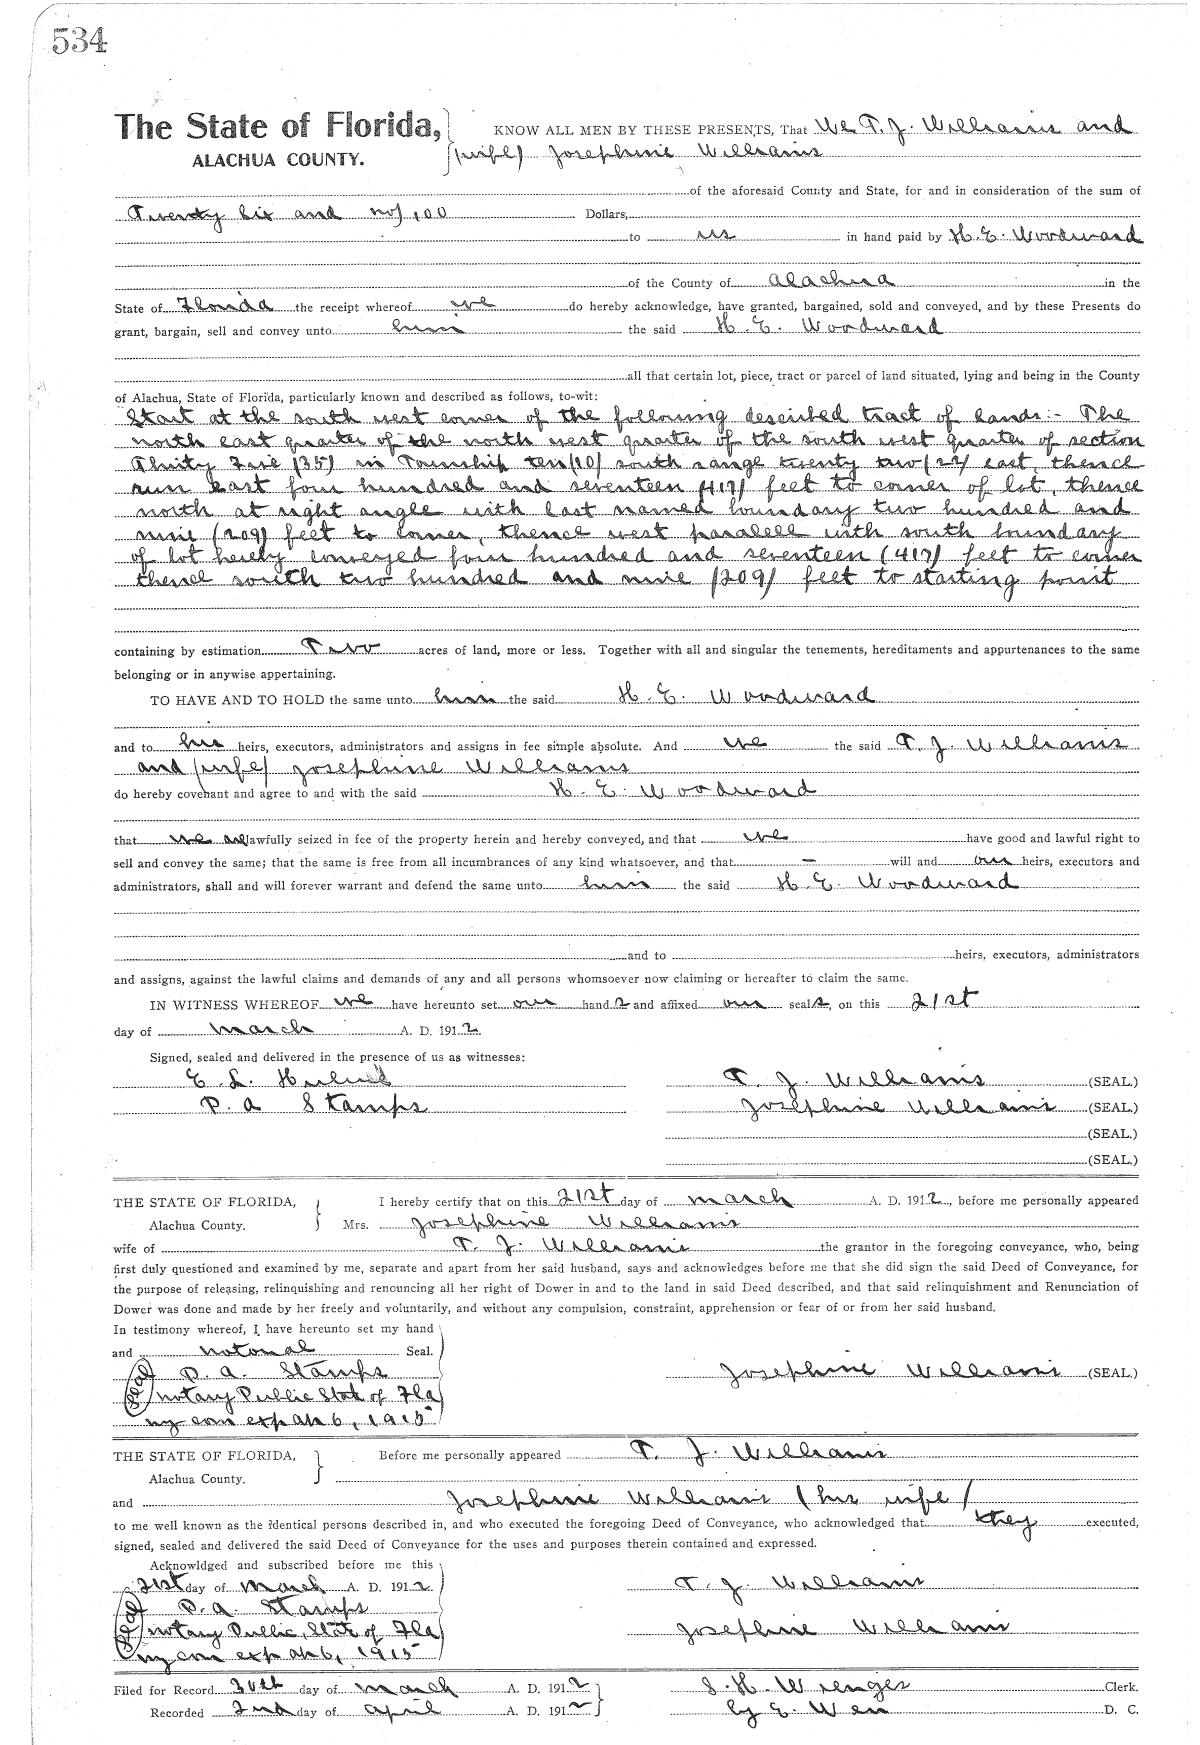 534
The State of Florida, KNOW ALL MEN BY THESE PRESENTS, That We T. J. Williams and
ALACHUA COUNTY. (wife) Josephine Williams
of the aforesaid County and State, for and in consideration of the sum of
Twenty Six and no/100 Dollars,
to us in hand paid by H. E. Woodward
of the County of Alachua in the
State of Florida the receipt whereof we do hereby acknowledge, have granted, bargained, sold and conveyed, and by these Presents do
grant, bargain, sell and convey unto him the said H. E. Woodward
all that certain lot, piece, tract or parcel of land situated, lying and being in the County
of Alachua, State of Florida, particularly known and described as follows, to-wit:
Start at the south west corner of the following described tract of lands:- The
north east quarter of the north west quarter of the south west quarter of section
Thirty Five (35) in Township ten (10) south range twenty two (22) east, thence
run East four hundred and seventeen (417) feet to corner of lot, thence
north at right angle with last named boundary two hundred and
nine (209) feet to corner, thence west paralell with south boundary
of lot hereby conveyed four hundred and seventeen (417) feet to corner
thence south two hundred and nine (209) feet to starting point
containing by estimation Two acres of land, more or less. Together with all and singular the tenements, hereditaments and appurtenances to the same
belonging or in anywise appertaining.
TO HAVE AND TO HOLD the same unto him the said H. E. Woodward
and to his heirs, executors, administrators and assigns in fee simple absolute. And we the said T. J. Williams
and (wife) Josephine Williams
do hereby covenant and agree to and with the said H. E. Woodward
that we are lawfully seized in fee of the property herein and hereby conveyed, and that we have good and lawful right to
sell and convey the same; that the same is free from all incumbrances of any kind whatsoever, and that - will and our heirs, executors and
administrators, shall and will forever warrant and defend the same unto him the said H. E. Woodward
and to heirs, executors, administrators
and assigns, against the lawful claims and demands of any and all persons whomsoever now claiming or hereafter to claim the same.
IN WITNESS WHEREOF we have hereunto set our hand s and affixed our seal s, on this 21st
day of March A. D. 1912.
Signed, sealed and delivered in the presence of us as witnesses:
E. L. T. J. Williams (SEAL.)
P. A Stamps Josephine Williams (SEAL.)
(SEAL.)
(SEAL.)
THE STATE OF FLORIDA, I hereby certify that on this 21st day of March A. D. 1912, before me personally appeared
Alachua County. Mrs. Josephine Williams
wife of T. J. Williams the grantor in the foregoing conveyance, who, being
first duly questioned and examined by me, separate and apart from her said husband, says and acknowledges before me that she did sign the said Deed of Conveyance, for
the purpose of releasing, relinquishing and renouncing all her right of Dower in and to the land in said Deed described, and that said relinquishment and Renunciation of
Dower was done and made by her freely and voluntarily, and without any compulsion, constraint, apprehension or fear of or from her said husband.
In testimony whereof, I have hereunto set my hand
and notorial Seal.
Seal P. A. Stamps Josephine Williams (SEAL)
notary Public State of Fla
my com exp Ap 6, 1915
THE STATE OF FLORIDA, Before me personally appeared T. J. Williams
Alachua County.
and Josephine Williams (his wife)
to me well known as the identical persons described in, and who executed the foregoing Deed of Conveyance, who acknowledged that they executed,
signed, sealed and delivered the said Deed of Conveyance for the uses and purposes therein contained and expressed.
Acknowldged and subscribed before me this
21st day of March A. D. 1912 T. J. Williams
Seal P. A. Stamps
notary Public, State of Fla Josephine Williams
my com exp Ap 6, 1915
Filed for Record 30th day of March A. D. 1912 S. H. Wienges Clerk.
Recorded 2nd day of April A. D. 1912 by E. D. C.